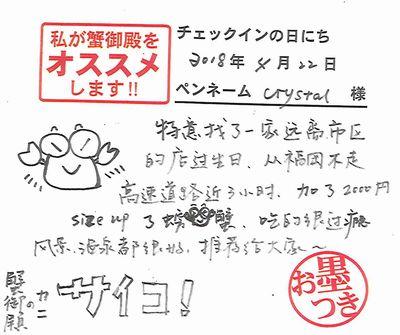 私が蟹御殿を
オススメ
します!!
チェックインの日にち
2018年4月22日
ペンネーム crystal 様
特意找了一家远离市区
的店过生日,从福冈不走
高速道路近3小时,加了2000円
size up了螃蟹,吃的很过瘾
风景、温泉都很好,推荐给大家~
蟹御殿
カニの
サイコ!
お墨つき